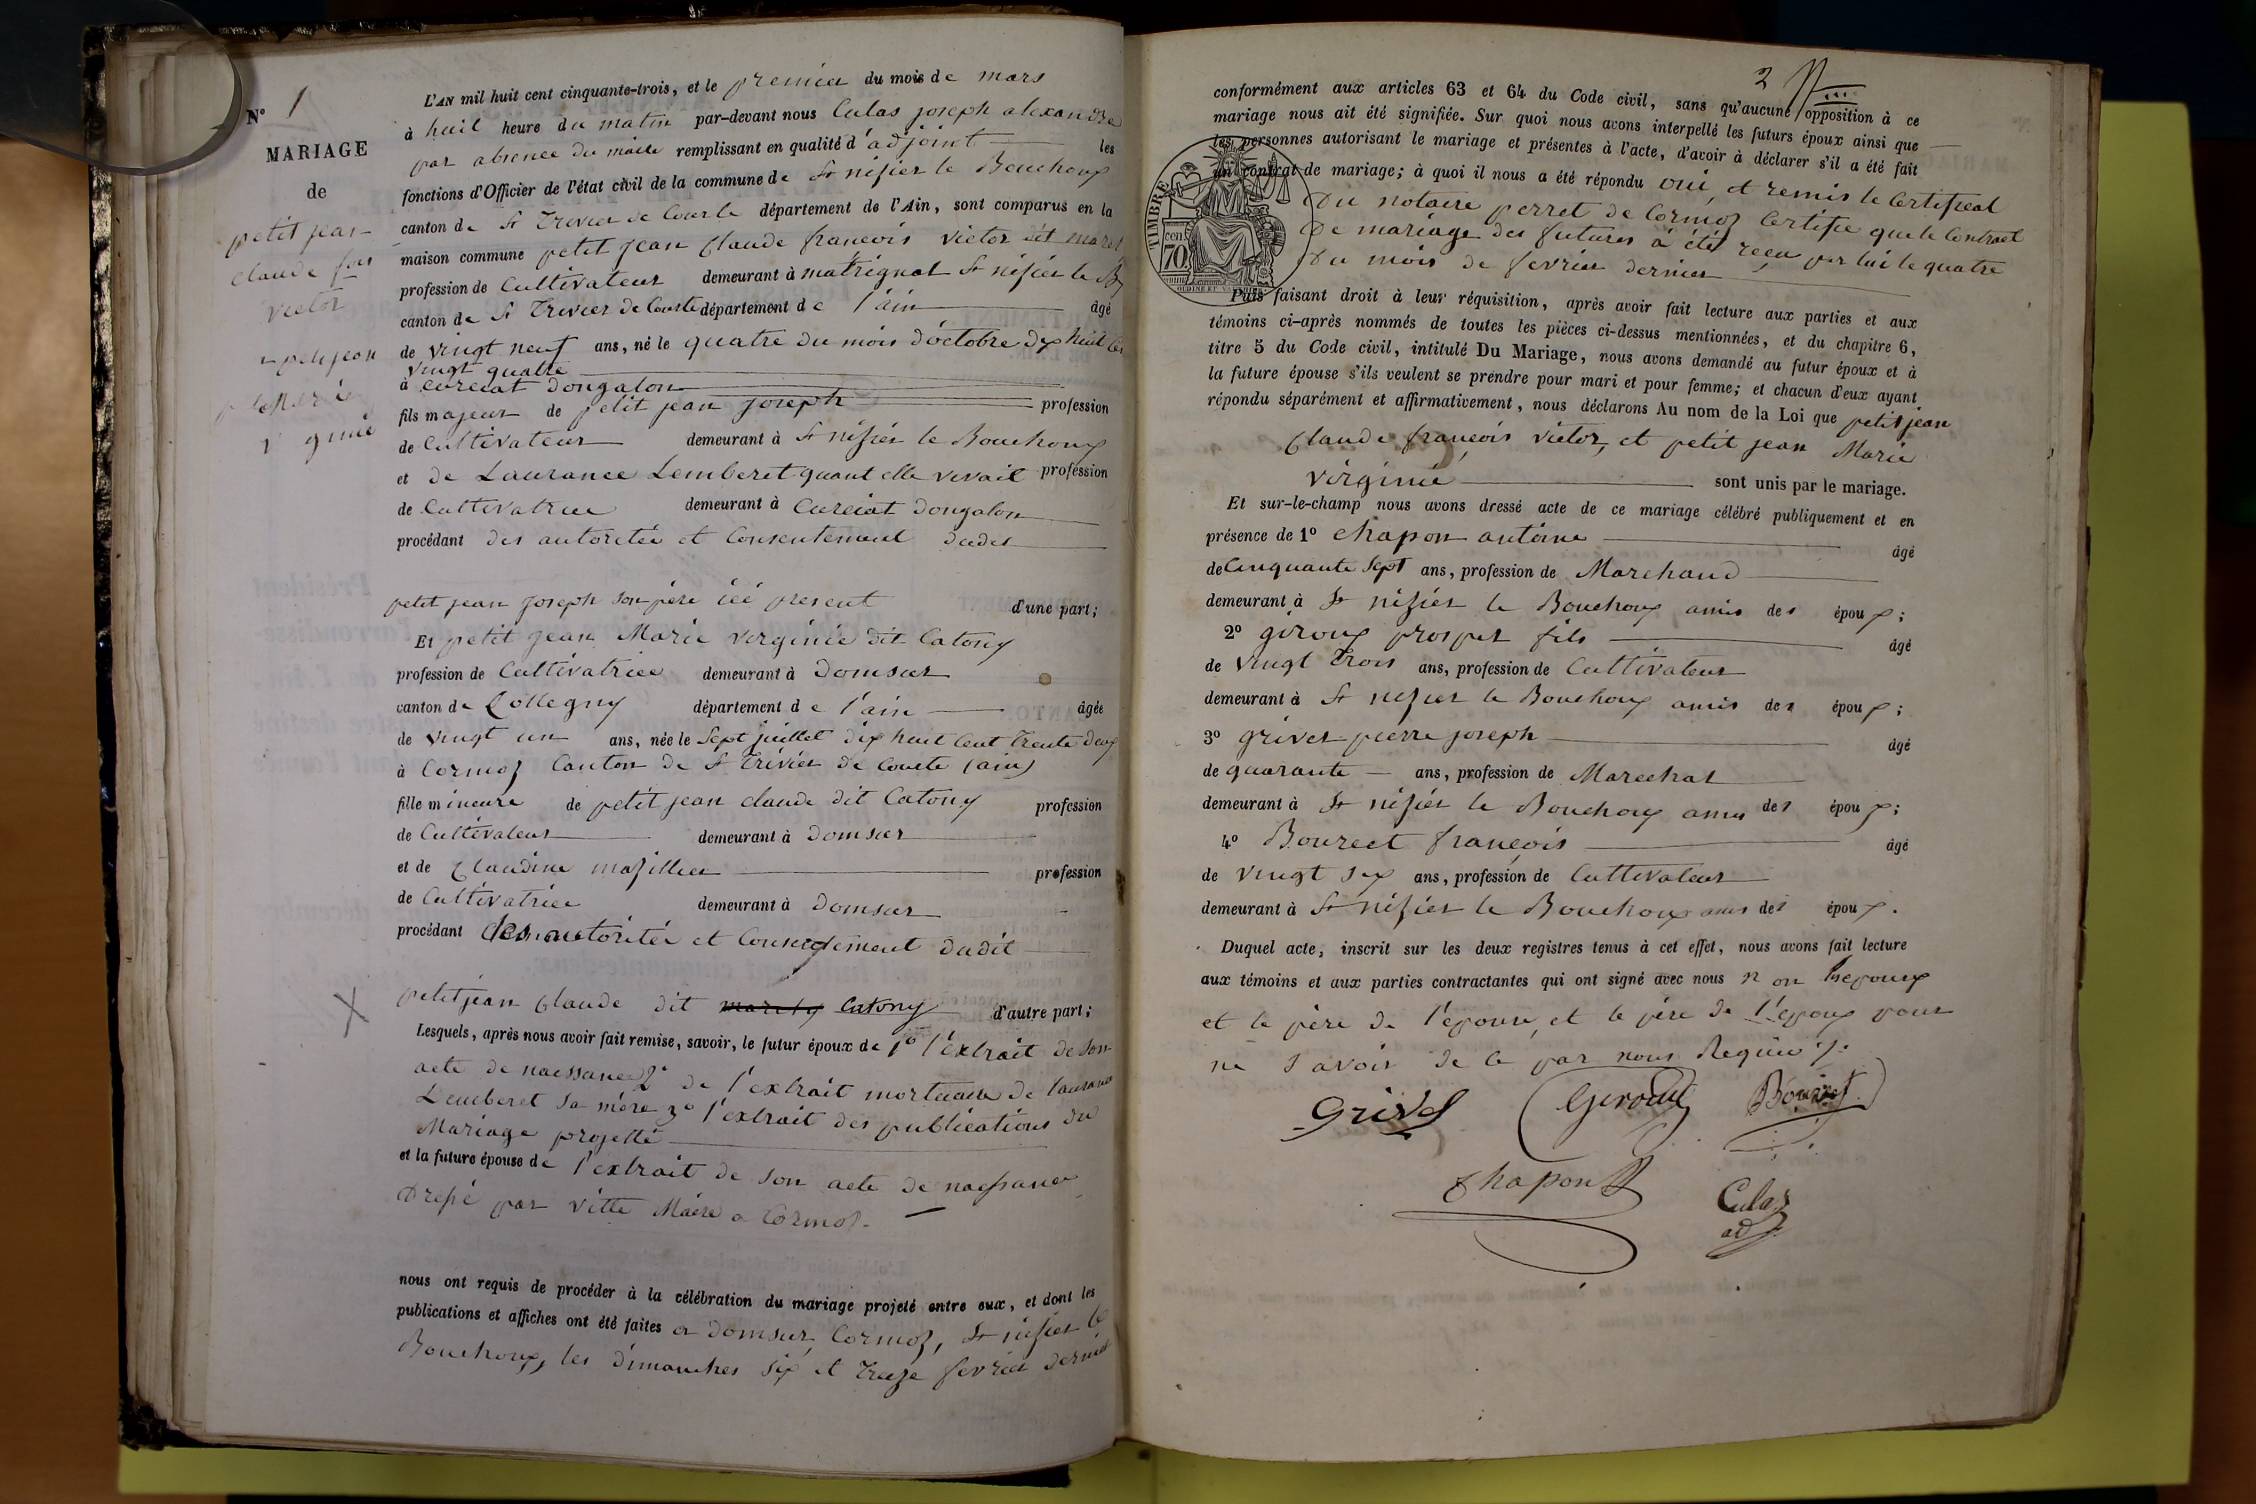 N° 1
MARIAGE
de
petit jean
claude fois
victor
petit jean
L'AN mil huit cent cinquante-trois, et le premier du mois de mars
à huit heure du matin par-devant nous Culas joseph alexandre
par absence du maire remplissant en qualité d'adjoint les
fonctions d'Officier de l'état civil de la commune de St nisier le Bouchoux
canton de St Trivier de Courte département de l'Ain, sont comparus en la
maison commune petit jean claude francois victor dit
profession de Cultivateur demeurant à matrignat St nisier le B
canton de St Trivier de Courte département de l'ain âgé
de vingt neuf ans, né le quatre du mois d'octobre dix huit cent
vingt quatre
à curciat dongalon
fils majeur de petit jean joseph profession
de Cultivateur demeurant à St nisier le Bouchoux
et de Laurance Lemberet quant elle vivait profession
de Cultivatrice demeurant à Curciat Dongalon
procédant des autoritée et Consentement dudit
petit jean joseph son père ici présent d'une part;
Et petit jean Marie virginie dit Catony
profession de Cultivatrice demeurant à Domsur
canton de Collegny département de l'ain âgée
de vingt un ans, née le Sept juillet dix huit cent trente deux
à Cormoz Canton de St Trivier de Courte (ain)
fille mineure de petit jean claude dit Catony profession
de Cultivateur demeurant à Domsur
et de Claudine mazillier profession
de Cultivatrice demeurant à Domsur
procédant des autoritée et Consentement dudit
petit jean Claude dit Catony d'autre part;
Lesquels, après nous avoir fait remise, savoir, le futur époux de 1° l'extrait de son
acte de naissance 2° de l'extrait mortuaire de laurance
Lemberet sa mère 3° l'extrait des publications du
Mariage projetté
et la future épouse de l'extrait de son acte de naissance
Dressé par vitte Maire a Cormoz.
nous ont requis de procéder à la célébration du mariage projeté entre eux, et dont les
publications et affiches ont été faites a domsur, Cormoz, St nisier le
Bouchoux, les dimanches six et treize fevrier dernier
2
conformément aux articles 63 et 64 du Code civil, sans qu'aucune opposition à ce
mariage nous ait été signifiée. Sur quoi nous avons interpellé les futurs époux ainsi que
les personnes autorisant le mariage et présentes à l'acte, d'avoir à déclarer s'il a été fait
un contrat de mariage; à quoi il nous a été répondu oui, et remis le Certificat
Du notaire perret de Cormoz Certifie que le Contract
De mariage des futures à été reçu par lui le quatre
Du mois de fevrier dernier
TIMBRE
cen.
70
OUDINÉ ET
Puis faisant droit à leur réquisition, après avoir fait lecture aux parties et aux
témoins ci-après nommés de toutes les pièces ci-dessus mentionnées, et du chapitre 6,
titre 5 du Code civil, intitulé Du Mariage, nous avons demandé au futur époux et à
la future épouse s'ils veulent se prendre pour mari et pour femme; et chacun d'eux ayant
répondu séparément et affirmativement, nous déclarons Au nom de la Loi que petit jean
Claude françois victor, et petit jean Marie
virginie sont unis par le mariage.
Et sur-le-champ nous avons dressé acte de ce mariage célébré publiquement et en
présence de 1° chapon antoine âgé
de Cinquante Sept ans, profession de Marchand
demeurant à St nisier le Bouchoux amis des époux;
2° giroux prosper fils âgé
de vingt trois ans, profession de Cultivateur
demeurant à St nisier le Bouchoux amis des époux;
3° grivet pierre joseph âgé
de quarante ans, profession de Marechal
demeurant à St nisier le Bouchoux amis des époux;
4° Bourcet françois âgé
de vingt six ans, profession de Cultivateur
demeurant à St nisier le Bouchoux amis des époux.
Duquel acte, inscrit sur les deux registres tenus à cet effet, nous avons fait lecture
aux témoins et aux parties contractantes qui ont signé avec nous non les epoux
et le père de l'epouse, et le père de l'epoux pour
ne savoir de ce par nous Requis
Grivel
Bourcet
Chapon
Culaz
ad